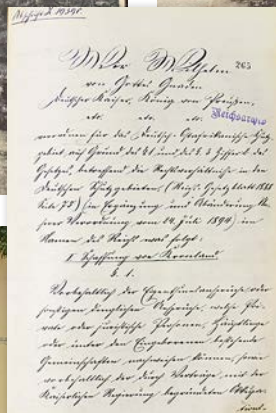 Abschrift 1939F.
265
Wir Wilhelm
von Gottes Gnaden
Deutscher Kaiser, König von Preußen,
etc. etc. etc.
Reichsarchiv
verordnen für das Deutsch-Ostafrikanische Schutz-
gebiet, auf Grund des §1 und des § 3 Ziffer 2 des
Gesetzes, betreffend die Rechtsverhältnisse in den
Deutschen Schutzgebieten, (Reichs-Gesetzblatt 1888
Seite 75) in Ergänzung und Abänderung Un-
serer Verordnung vom 24. Juli 1894, im
Namen des Reichs was folgt:
I. Schaffung von Kronland.
§. 1.
Vorbehaltlich der Eigenthumsansprüche oder
sonstigen dinglichen Ansprüche, welche Pri-
vate oder juristische Personen, Häuptlinge
oder unter den Eingeborenen bestehende
Gemeinschaften nachweisen können, sowie
vorbehaltlich der durch Verträge mit der
Kaiserlichen Regierung begründeten Okkupa-
tions-